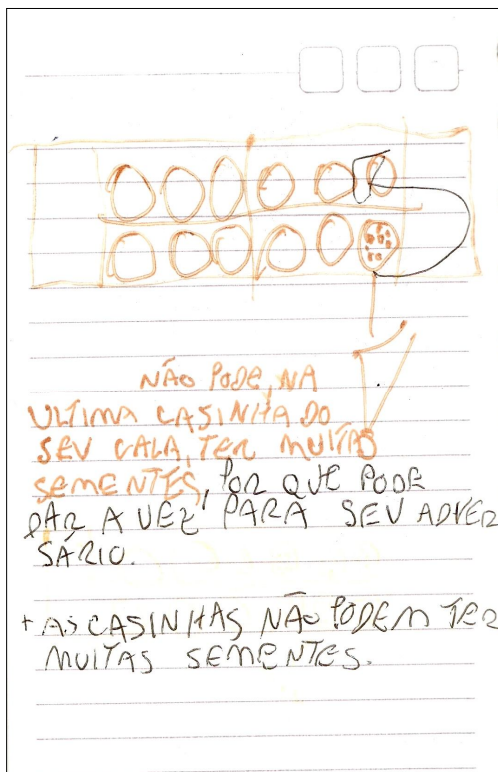 NÃO PODE, NA
ULTIMA CASINHA DO
SEU CALA, TER MUITAS
SEMENTES, POR QUE PODE
DAR A VEZ PARA SEU ADVER
SÁRIO.
+ AS CASINHAS NÃO PODEM TER
MUITAS SEMENTES.